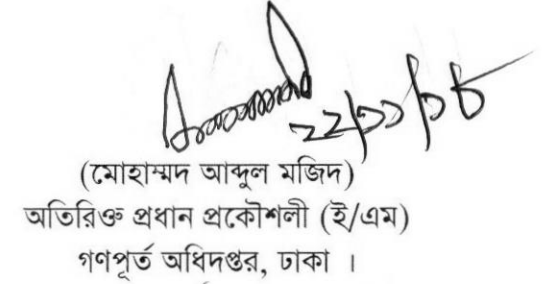 ২২/১১/১৮
(মোহাম্মদ আব্দুল মজিদ)
অতিরিক্ত প্রধান প্রকৌশলী (ই/এম)
গণপূর্ত অধিদপ্তর, ঢাকা ।